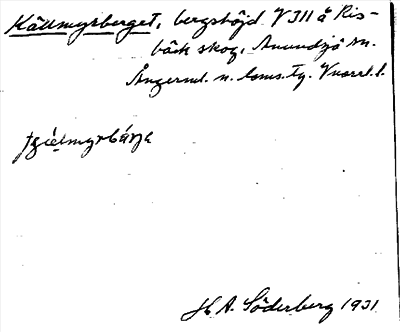 Källmyrberget, bergshöjd. VIII å Ris-
bäck skog, Anundsjö sn.
Ångerml. n. doms. Tg.
tjiélmyrbárje
H. A. Söderberg 1931